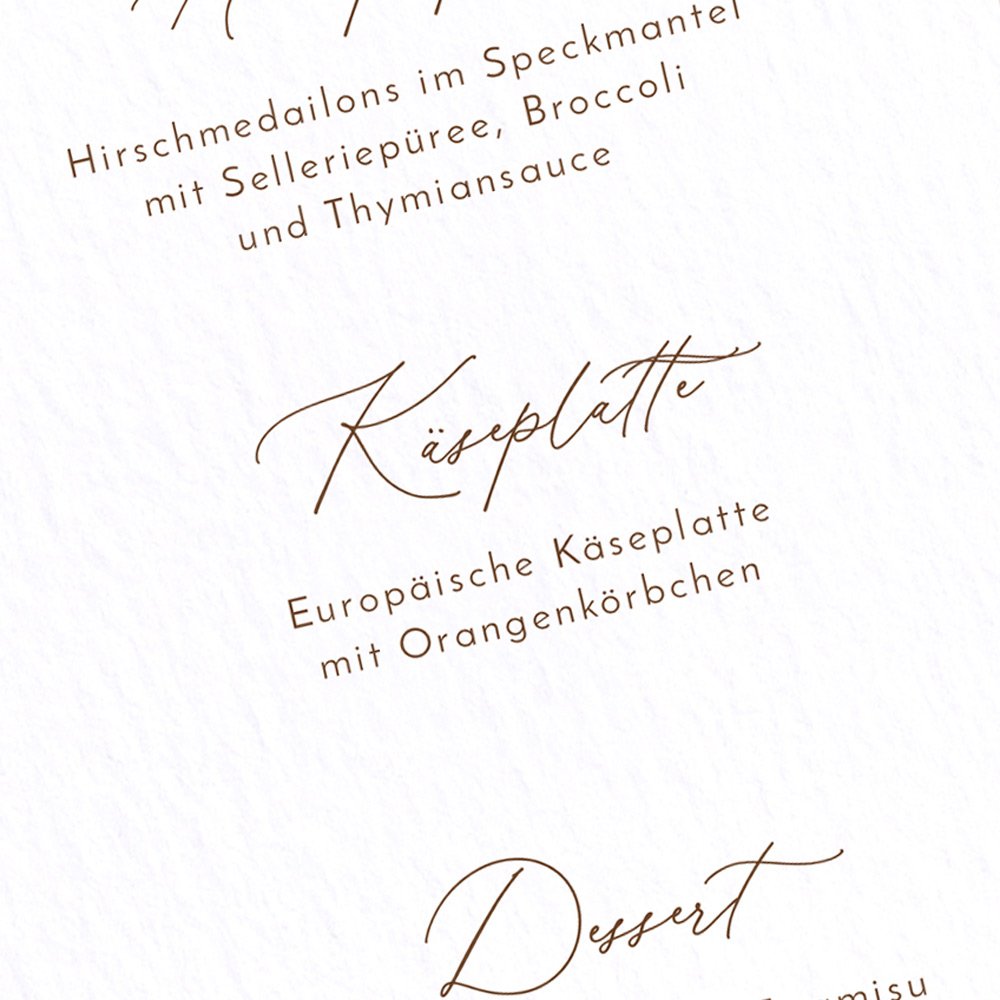 Hirschmedailons im Speckmantel
mit Selleriepüree, Broccoli
und Thymiansauce
Käseplatte
Europäische Käseplatte
mit Orangenkörbchen
Dessert